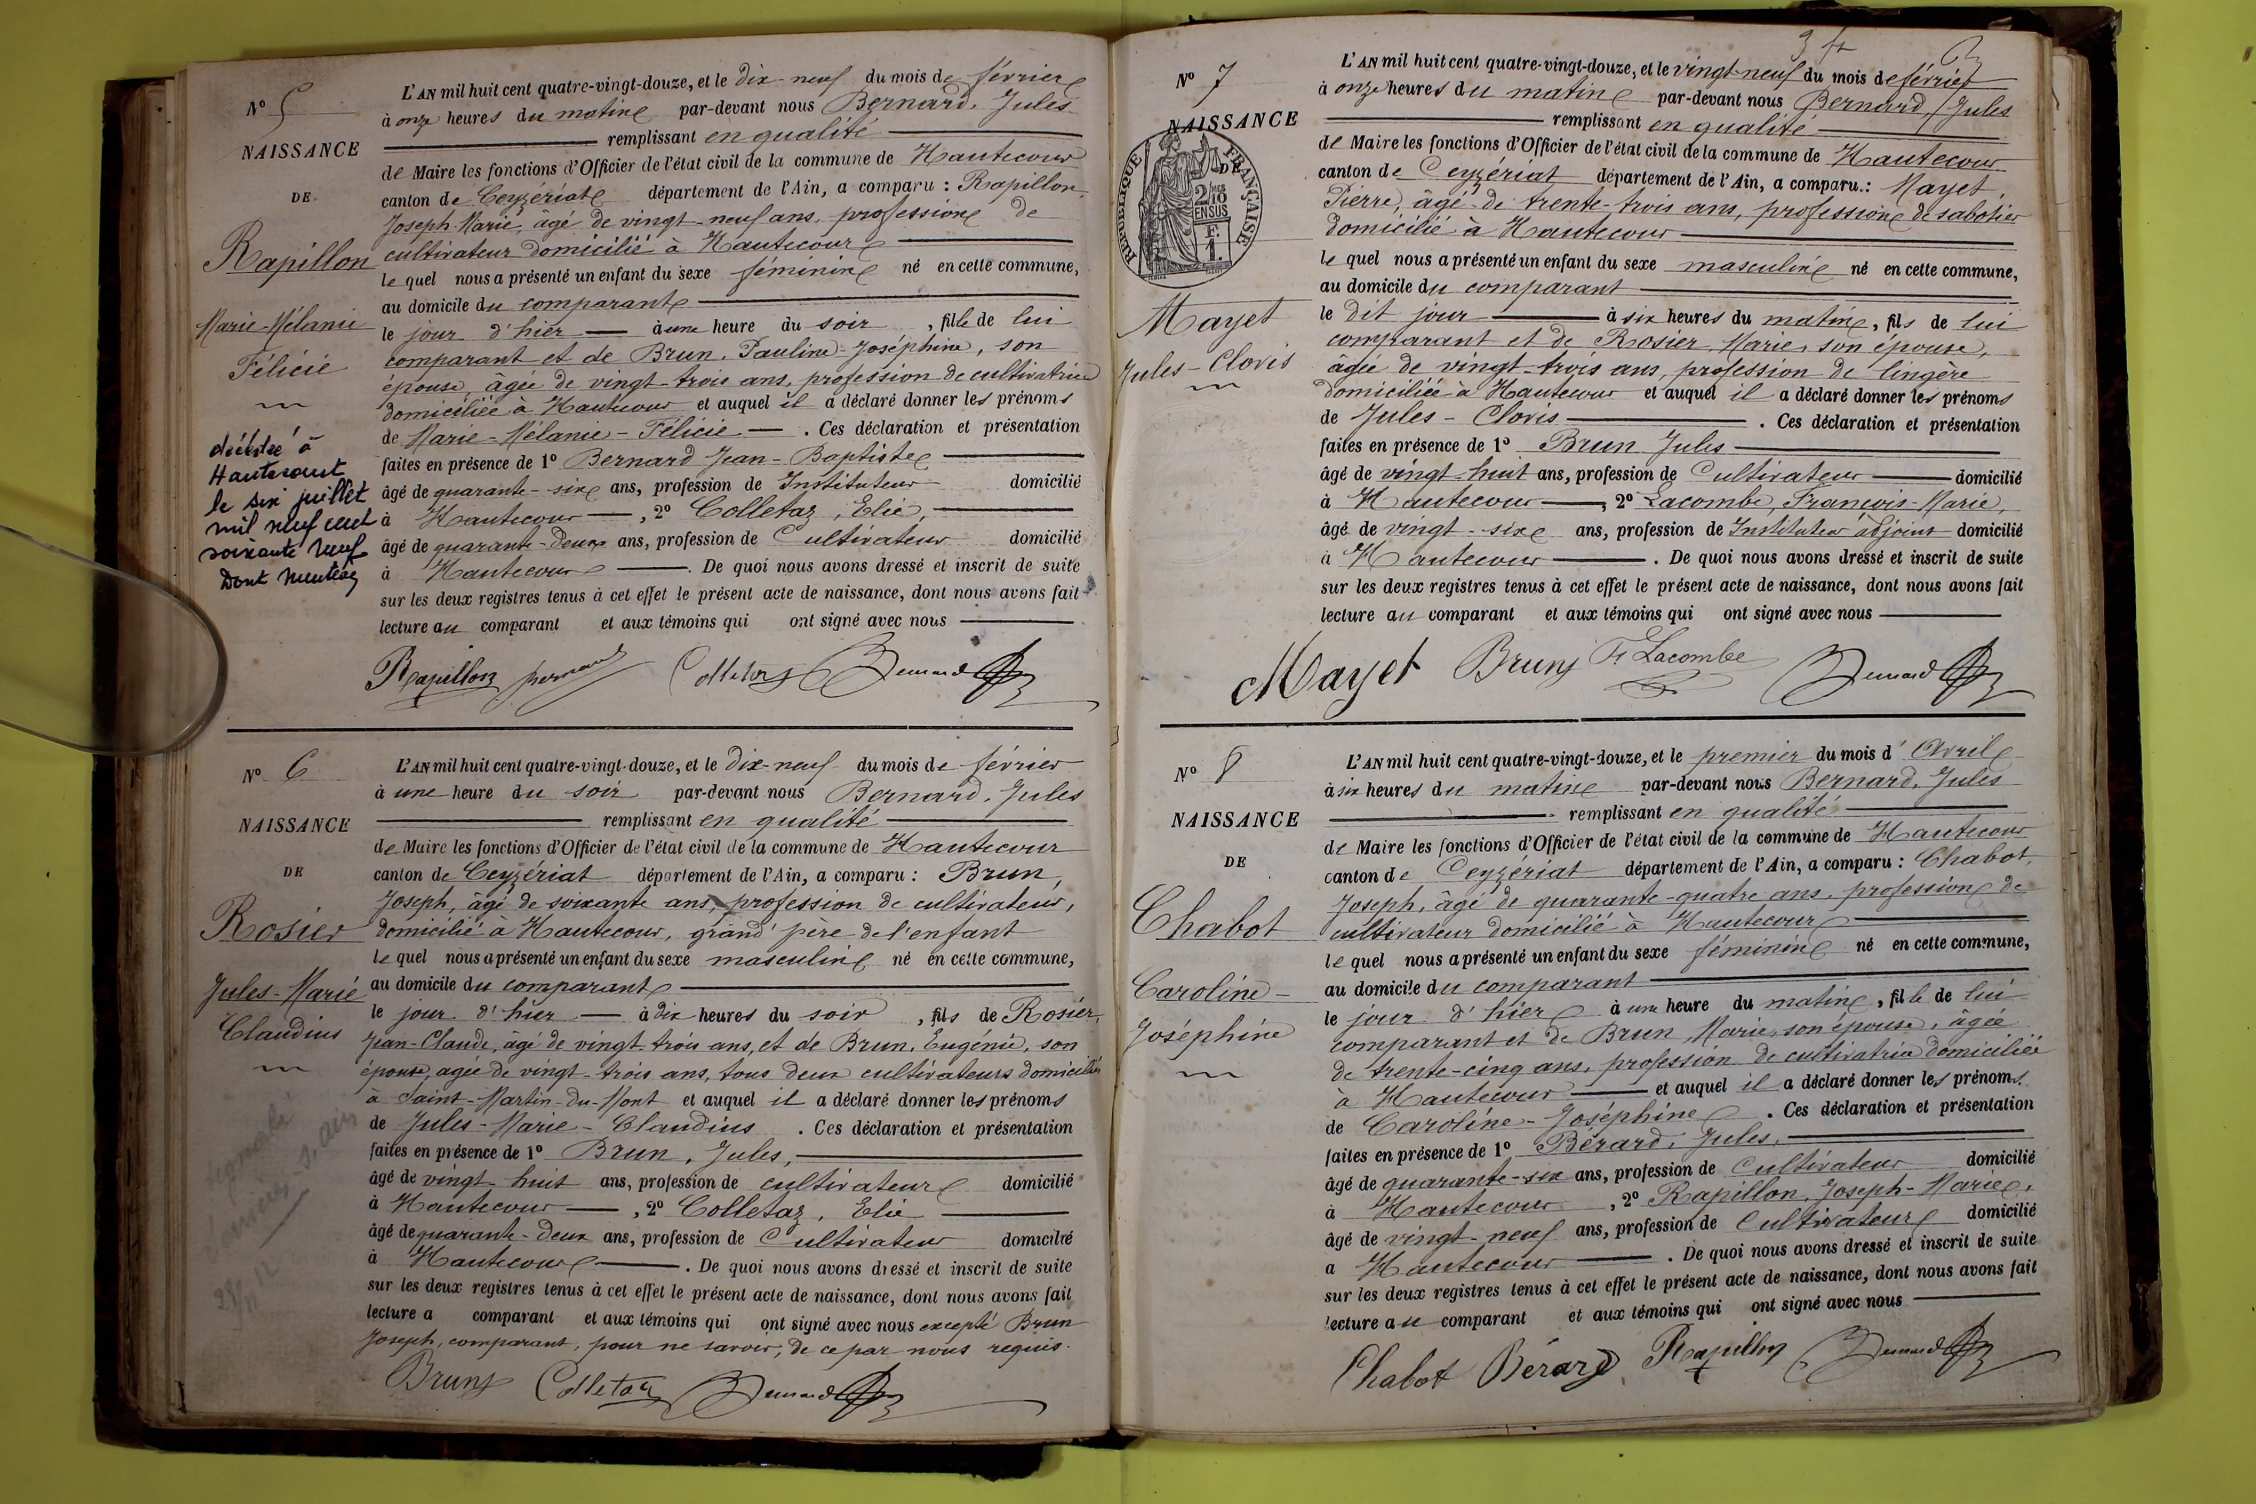 N° 5
NAISSANCE
DE
Rapillon
Marie-Mélanie
Félicie
décédée à
Hautecourt
le six juillet
mil neuf cent
soixante neuf
Dont mention
L'AN mil huit cent quatre-vingt-douze, et le dix-neuf du mois de février
à onze heures du matin par-devant nous Bernard, Jules
remplissant en qualité
de Maire les fonctions d'Officier de l'état civil de la commune de Hautecour
canton de Ceyzériat département de l'Ain, a comparu : Rapillon,
Joseph-Marie, âgé de vingt-neuf ans, profession de
cultivateur domicilié à Hautecour
le quel nous a présenté un enfant du sexe féminin né en cette commune,
au domicile du comparant
le jour d'hier à une heure du soir, fille de lui
comparant et de Brun, Pauline-Joséphine, son
épouse, âgée de vingt-trois ans, profession de cultivatrice
domiciliée à Hautecour et auquel il a déclaré donner les prénoms
de Marie-Mélanie-Félicie. Ces déclaration et présentation
faites en présence de 1° Bernard Jean-Baptiste
âgé de quarante-six ans, profession de Instituteur domicilié
à Hautecour, 2° Colletaz, Elie,
âgé de quarante-deux ans, profession de Cultivateur domicilié
à Hautecour. De quoi nous avons dressé et inscrit de suite
sur les deux registres tenus à cet effet le présent acte de naissance, dont nous avons fait
lecture au comparant et aux témoins qui ont signé avec nous
Rapillon Colletaz Bernard
N° 6
NAISSANCE
DE
Rosier
Jules-Marie
Claudius
L'AN mil huit cent quatre-vingt-douze, et le dix-neuf du mois de février
à une heure du soir par-devant nous Bernard, Jules
remplissant en qualité
de Maire les fonctions d'Officier de l'état civil de la commune de Hautecour
canton de Ceyzériat département de l'Ain, a comparu : Brun,
Joseph, âgé de soixante ans, profession de cultivateur,
domicilié à Hautecour, grand' père de l'enfant
le quel nous a présenté un enfant du sexe masculin né en cette commune,
au domicile du comparant
le jour d'hier à dix heures du soir, fils de Rosier,
Jean-Claude, âgé de vingt-trois ans, et de Brun, Eugénie, son
épouse, agée de vingt-trois ans, tous deux cultivateurs domiciliés
à Saint-Martin-du-Mont et auquel il a déclaré donner les prénoms
de Jules-Marie-Claudius. Ces déclaration et présentation
faites en présence de 1° Brun, Jules,
âgé de vingt-huit ans, profession de cultivateur domicilié
à Hautecour, 2° Colletaz, Elie
âgé de quarante-deux ans, profession de Cultivateur domicilié
à Hautecour. De quoi nous avons dressé et inscrit de suite
sur les deux registres tenus à cet effet le présent acte de naissance, dont nous avons fait
lecture a comparant et aux témoins qui ont signé avec nous excepté Brun
Joseph, comparant, pour ne savoir, de ce par nous requis.
Brun Colletaz Bernard
3 fr
N° 7
NAISSANCE
DE
RÉPUBLIQUE FRANÇAISE
2/10 EN SUS
F. 1.
Mayet
Jules-Clovis
L'AN mil huit cent quatre-vingt-douze, et le vingt-neuf du mois de février
à onze heures du matin par-devant nous Bernard, Jules
remplissant en qualité
de Maire les fonctions d'Officier de l'état civil de la commune de Hautecour
canton de Ceyzériat département de l'Ain, a comparu : Mayet,
Pierre, âgé de trente-trois ans, profession de sabotier
domicilié à Hautecour
le quel nous a présenté un enfant du sexe masculin né en cette commune,
au domicile du comparant
le dit jour à six heures du matin, fils de lui
comparant et de Rosier, Marie, son épouse,
âgée de vingt-trois ans, profession de lingère
domiciliée à Hautecour et auquel il a déclaré donner les prénoms
de Jules-Clovis. Ces déclaration et présentation
faites en présence de 1° Brun Jules
âgé de vingt-huit ans, profession de Cultivateur domicilié
à Hautecour, 2° Lacombe, François-Marie,
âgé de vingt-six ans, profession de Instituteur adjoint domicilié
à Hautecour. De quoi nous avons dressé et inscrit de suite
sur les deux registres tenus à cet effet le présent acte de naissance, dont nous avons fait
lecture au comparant et aux témoins qui ont signé avec nous
Mayet Brun F Lacombe Bernard
N° 8
NAISSANCE
DE
Chabot
Caroline-
Joséphine
L'AN mil huit cent quatre-vingt-douze, et le premier du mois d'Avril
à six heures du matin par-devant nous Bernard, Jules
remplissant en qualité
de Maire les fonctions d'Officier de l'état civil de la commune de Hautecour
canton de Ceyzériat département de l'Ain, a comparu : Chabot,
Joseph, âgé de quarante-quatre ans, profession de
cultivateur domicilié à Hautecour
le quel nous a présenté un enfant du sexe féminin né en cette commune,
au domicile du comparant
le jour d'hier à une heure du matin, fille de lui
comparant et de Brun, Marie, son épouse, âgée
de trente-cinq ans, profession de cultivatrice domiciliée
à Hautecour et auquel il a déclaré donner les prénoms
de Caroline-Joséphine. Ces déclaration et présentation
faites en présence de 1° Bérard, Jules,
âgé de quarante-six ans, profession de Cultivateur domicilié
à Hautecour, 2° Rapillon, Joseph-Marie,
âgé de vingt-neuf ans, profession de Cultivateur domicilié
a Hautecour. De quoi nous avons dressé et inscrit de suite
sur les deux registres tenus à cet effet le présent acte de naissance, dont nous avons fait
lecture au comparant et aux témoins qui ont signé avec nous
Chabot Bérard Rapillon Bernard